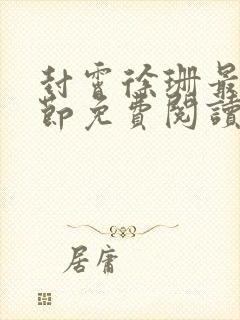 封霄徐珊最
節免費閱讀
居庸